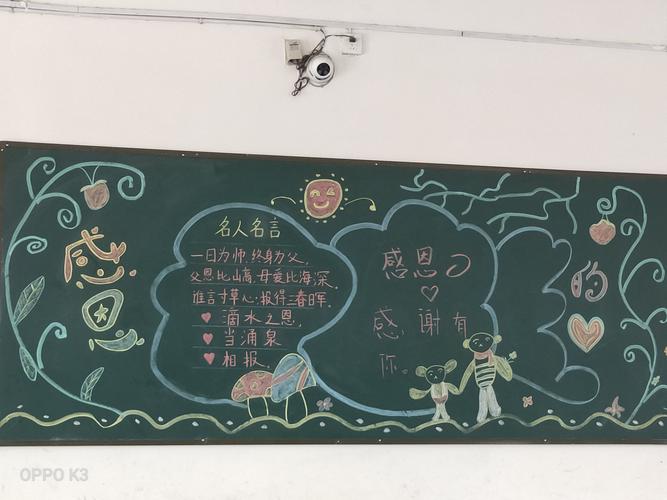 感恩
的
名人名言
一日为师,终身为父。
父恩比山高,母爱比海深。
谁言寸草心,报得三春晖。
滴水之恩,
当涌泉
相报。
感恩心
感谢有
你。
OPPO K3